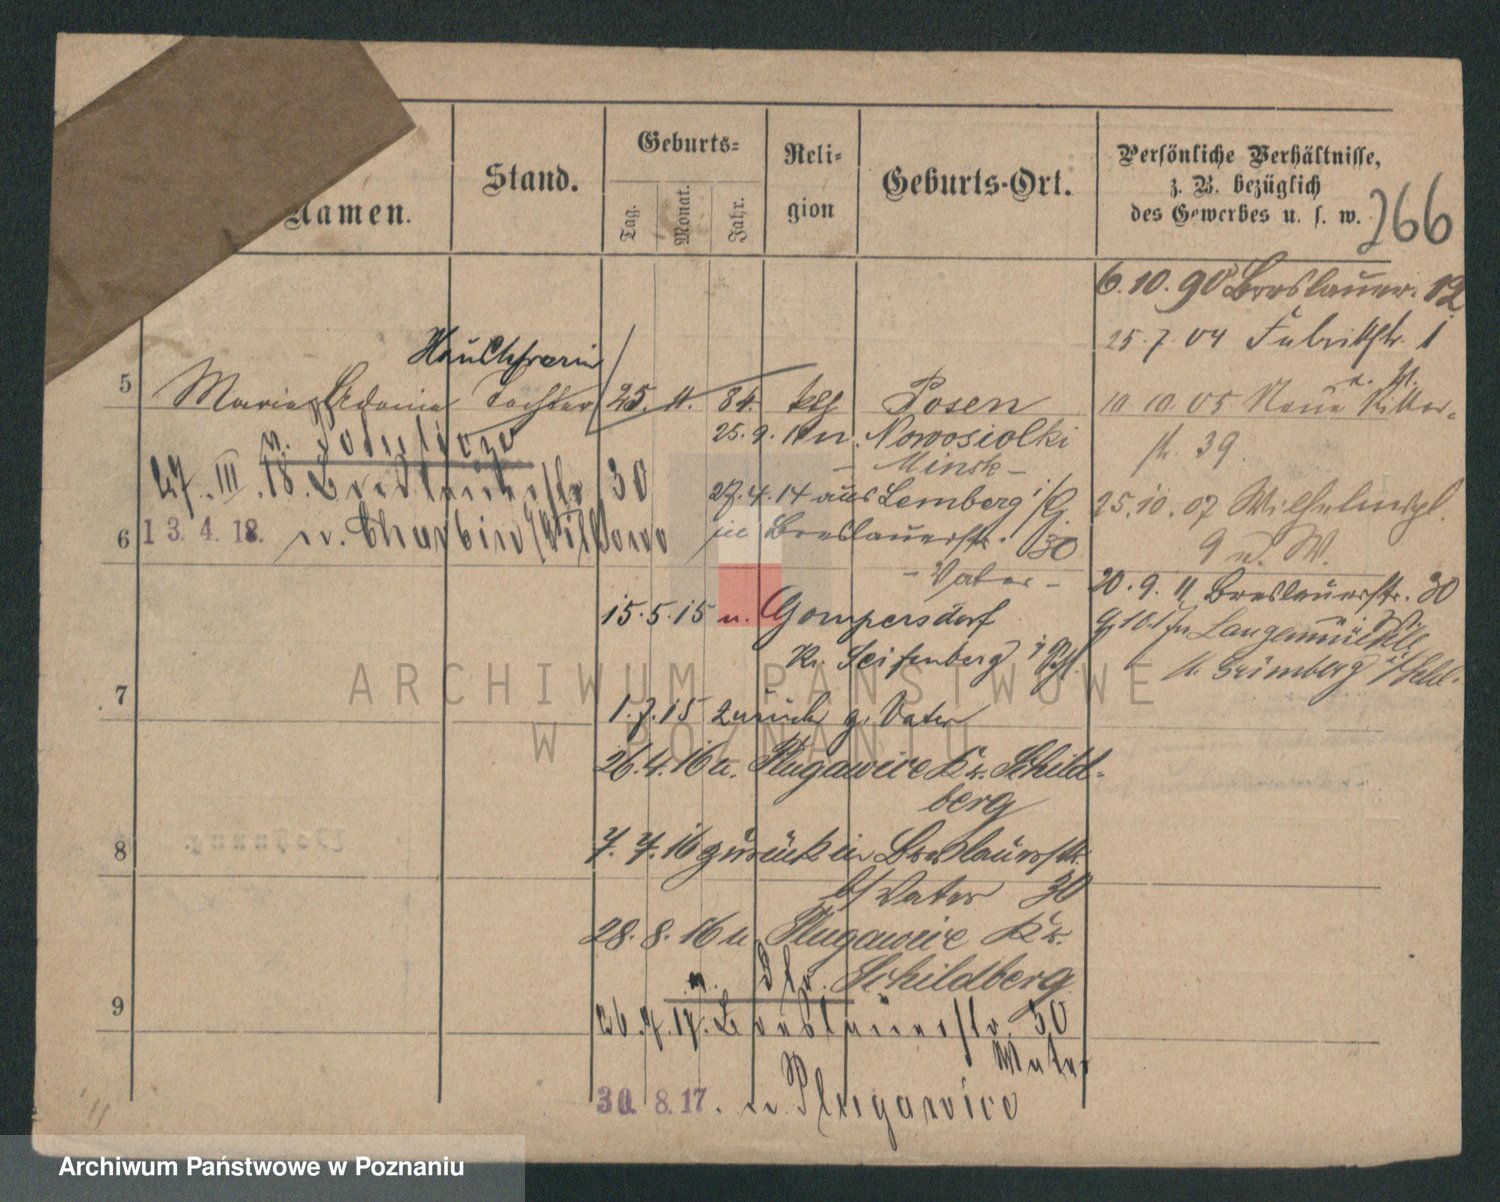 Namen.
Stand.
Geburts-
Tag.
Monat.
Jahr.
Reli-
gion
Geburts-Ort.
Persönliche Verhältnisse,
z. B. bezüglich
des Gewerbes u. s. w.
266
6. 10. 90 Breslauer. 12
25. 7. 04 Fabrikstr. 1
10 10. 05 Neue Ritter-
str. 39.
25. 10. 07 Wilhelmspl.
9 u. W.
20. 9. 11 Breslauerstr. 30
5
Maria Tochter 25. 84. Posen
25. 9. n. Nowosiolki
- Minsk -
27. III. 18. Breslauerstr. 30
27. 4. 14 aus Lemberg
in Breslauerstr. 30
- Vater -
6
13. 4. 18. n.
15. 5. 15 n. Gompersdorf
Kr.
7
1. 7. 15 zurück z. Vater
26. 4. 16 n. Plugawice Kr. Schild-
berg
8
7. 7. 16 zurück in Breslauerstr.
b/ Vater 30
28. 8. 16 n. Plugawice Kr.
Schildberg
9
26. 7. 17. Breslauerstr. 30
Vater
30. 8. 17. n. Plugawice
ARCHIWUM PAŃSTWOWE
W POZNANIU
Archiwum Państwowe w Poznaniu